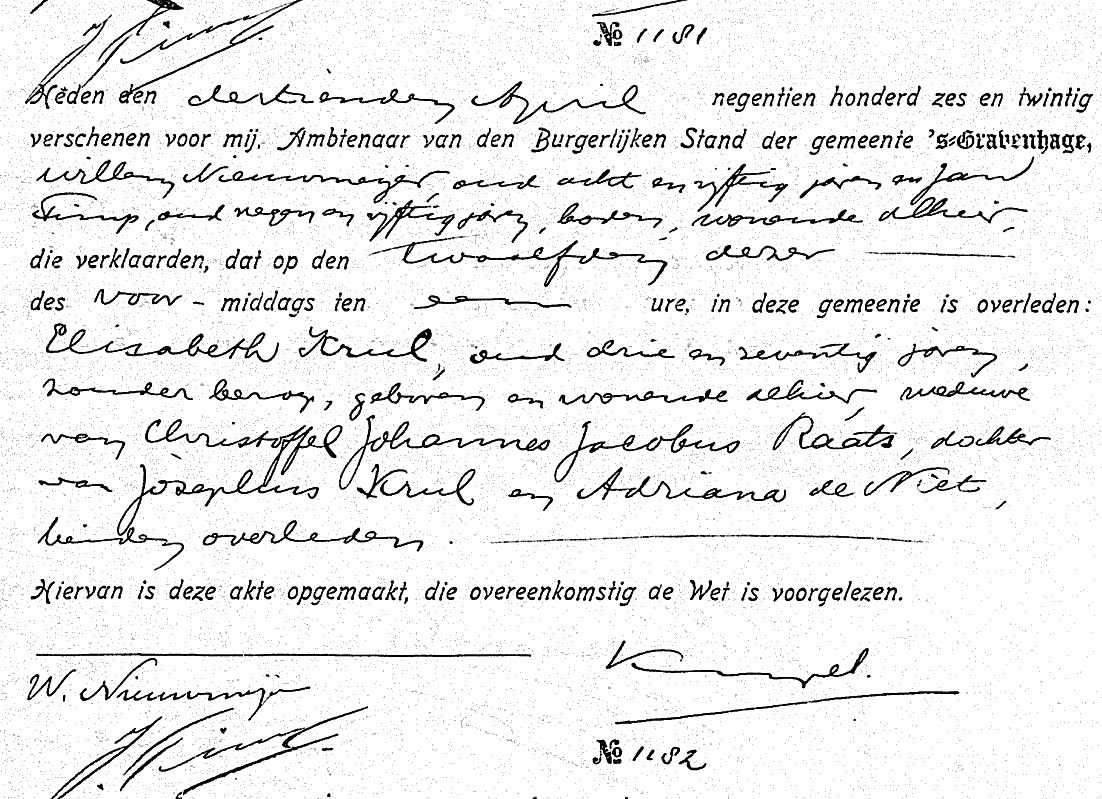 № 1181
Heden den dertienden April negentien honderd zes en twintig
verschenen voor mij, Ambtenaar van den Burgerlijken Stand der gemeente 's-Gravenhage,
Willem Nieuwmeijer, oud acht en vijftig jaren en Jan
oud negen en vijftig jaren, boden, wonende alhier,
die verklaarden, dat op den twaalfden dezer
des voor - middags ten een ure, in deze gemeente is overleden:
Elisabeth Krul, oud drie en zeventig jaren,
zonder beroep, geboren en wonende alhier, weduwe
van Christoffel Johannes Jacobus Raats, dochter
van Josephus Krul en Adriana de Niet,
beiden overleden.
Hiervan is deze akte opgemaakt, die overeenkomstig de Wet is voorgelezen.
W. Nieuwmeijer
№ 1182